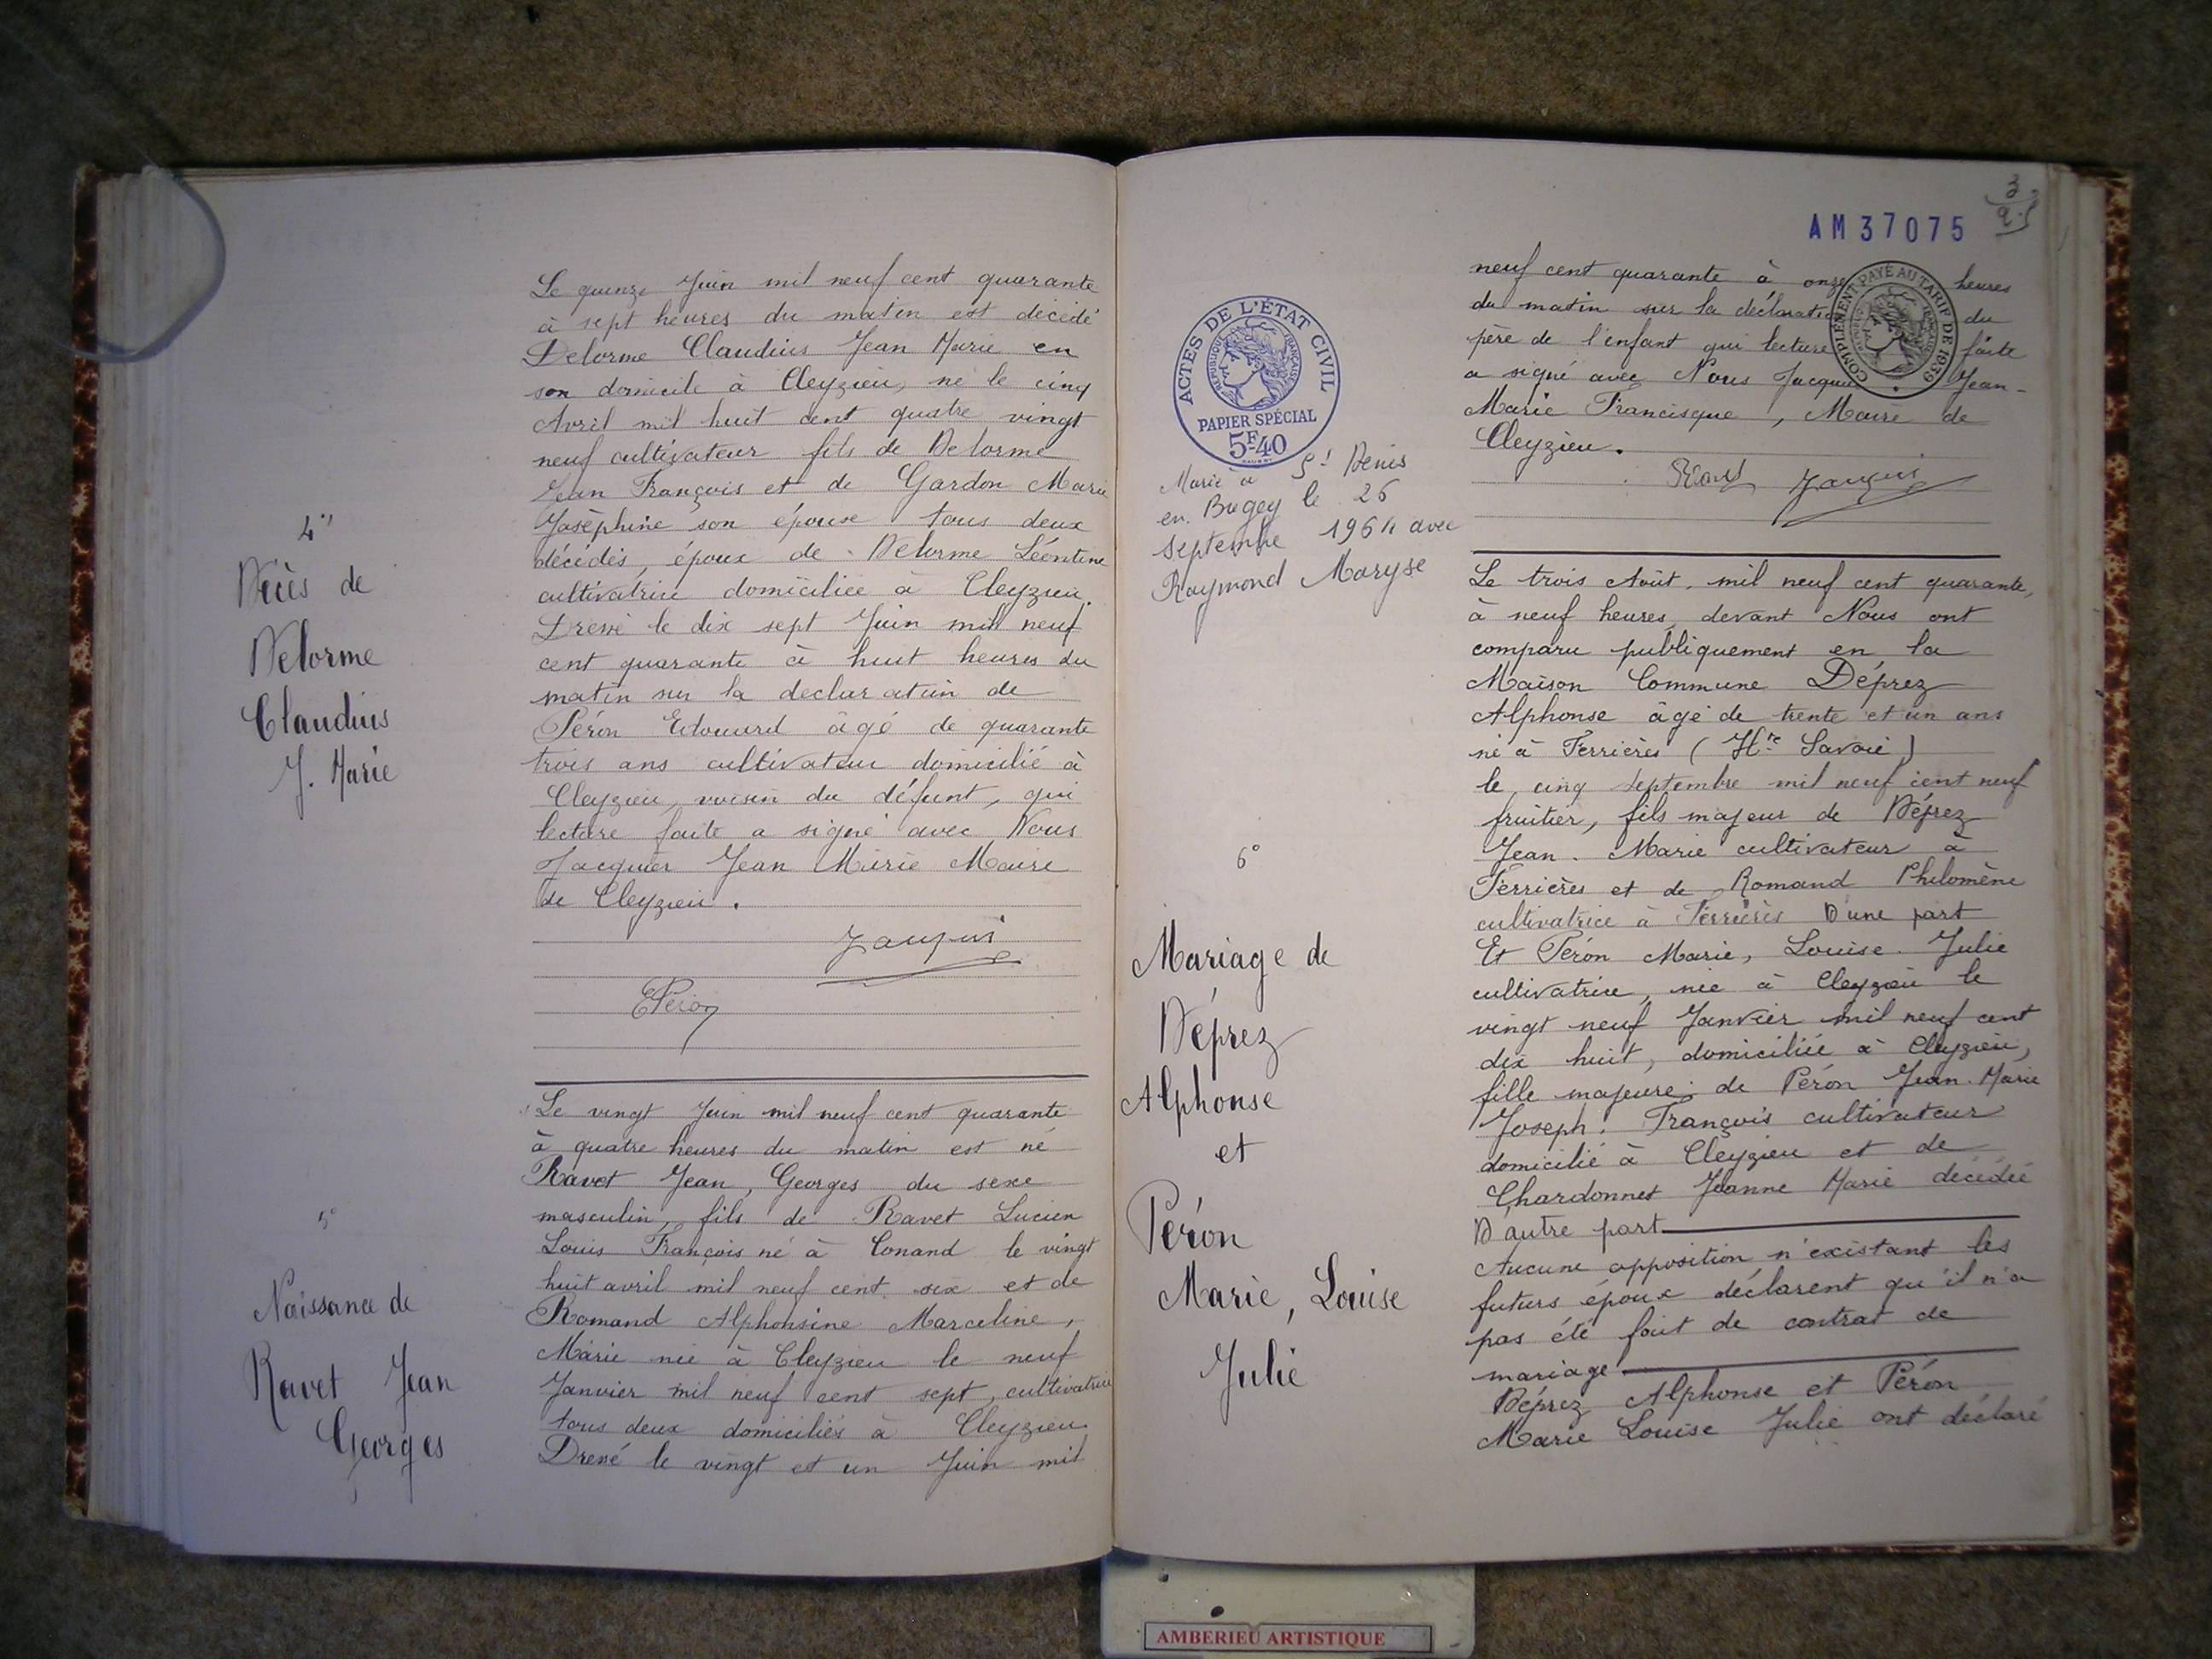 4°
Décès de
Delorme
Claudius
J. Marie
Le quinze Juin mil neuf cent quarante
à sept heures du matin est décédé
Delorme Claudius Jean Marie en
son domicile à Cleyzieu, né le cinq
Avril mil huit cent quatre vingt
neuf cultivateur fils de Delorme
Jean François et de Gardon Marie
Joséphine son épouse tous deux
décédés, époux de Delorme Léontine
cultivatrice domiciliée à Cleyzieu.
Dressé le dix sept Juin mil neuf
cent quarante à huit heures du
matin sur la declaration de
Péron Edouard âgé de quarante
trois ans cultivateur domicilié à
Cleyzieu, voisin du défunt, qui
lecture faite a signé avec Nous
Jacquier Jean Marie Maire
de Cleyzieu.
Jacquier
EPéron
5°
Naissance de
Ravet Jean
Georges
Le vingt Juin mil neuf cent quarante
à quatre heures du matin est né
Ravet Jean, Georges du sexe
masculin, fils de Ravet Lucien
Louis François né à Conand le vingt
huit avril mil neuf cent six et de
Romand Alphonsine Marceline,
Marie née à Cleyzieu le neuf
Janvier mil neuf cent sept, cultivatrice
tous deux domiciliés à Cleyzieu
Dressé le vingt et un Juin mil
3
AM37075
ACTES DE L'ÉTAT CIVIL
RÉPUBLIQUE FRANÇAISE
PAPIER SPÉCIAL
5F40
COMPLÉMENT PAYÉ AU TARIF DE 1939
Marié à St Denis
en Bugey le 26
septembre 1964 avec
Raymond Maryse
neuf cent quarante à onze heures
du matin sur la déclaration du
père de l'enfant qui lecture faite
a signé avec Nous Jacquier Jean-
Marie Francisque, Maire de
Cleyzieu.
Ravet Jacquier
6°
Mariage de
Déprez
Alphonse
et
Péron
Marie, Louise
Julie
Le trois Août mil neuf cent quarante,
à neuf heures, devant Nous ont
comparu publiquement en la
Maison Commune Déprez
Alphonse âgé de trente et un ans
né à Ferrières (Hte Savoie)
le cinq septembre mil neuf cent neuf
fruitier, fils majeur de Déprez
Jean. Marie cultivateur à
Ferrières et de Romand Philomène
cultivatrice à Ferrières D'une part
Et Péron Marie, Louise. Julie
cultivatrice, née à Cleyzieu le
vingt neuf Janvier mil neuf cent
dix huit, domiciliée à Cleyzieu,
fille majeure de Péron Jean. Marie
Joseph. François cultivateur
domicilié à Cleyzieu et de
Chardonnet Jeanne Marie décédée
D'autre part
Aucune opposition n'existant les
futurs époux déclarent qu'il n'a
pas été fait de contrat de
mariage
Déprez Alphonse et Péron
Marie Louise Julie ont déclaré
AMBERIEU ARTISTIQUE